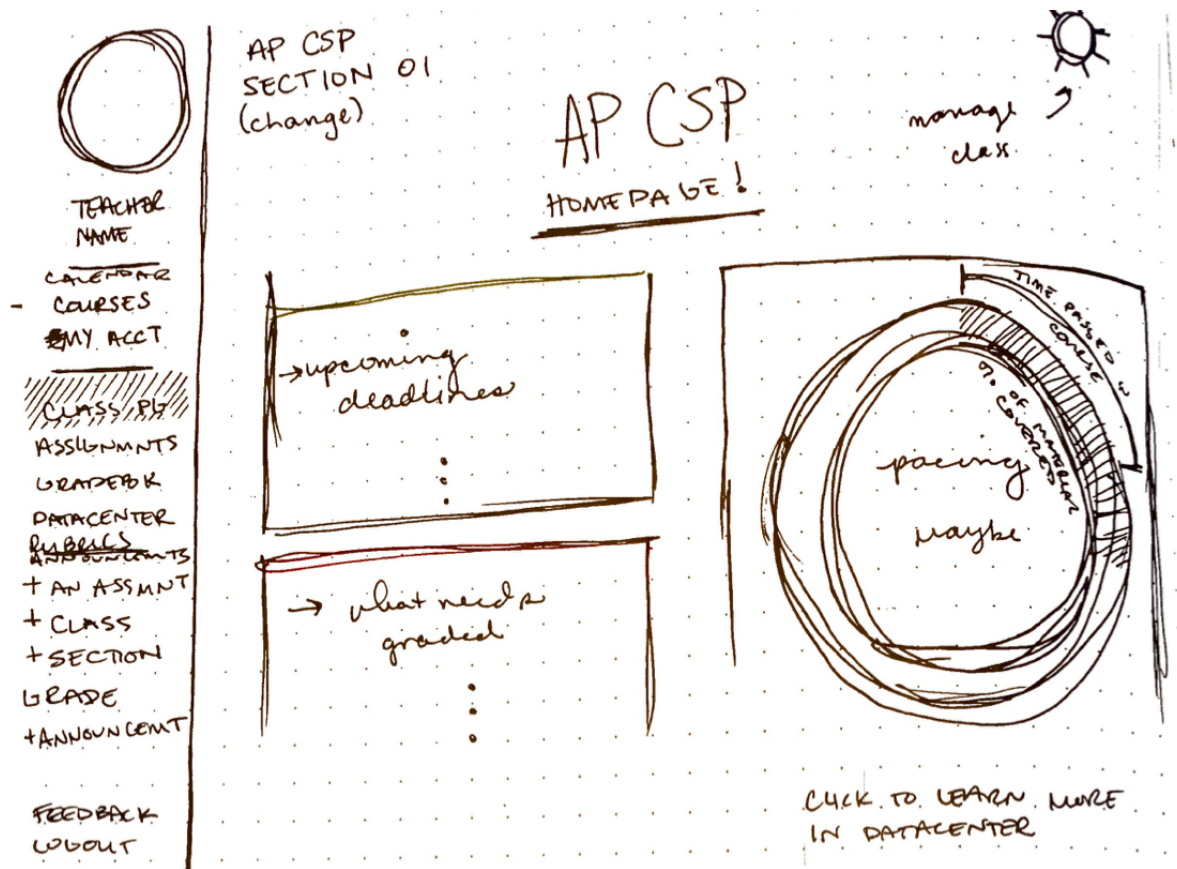 TEACHER
NAME
CALENDAR
- COURSES
MY ACCT
CLASS PG
ASSIGNMNTS
GRADEBK
DATACENTER
RUBRICS
ANNOUNCEMTS
+ AN ASSMNT
+ CLASS
+ SECTION
GRADE
+ANNOUNCEMT
FEEDBACK
LOGOUT
AP CSP
SECTION 01
(change)
AP CSP
HOMEPAGE!
manage
class
→ upcoming
deadlines
→ what needs
graded
TIME PASSED
COURSE
% OF MATERIAL
COVERED
pacing
maybe
CLICK TO LEARN MORE
IN DATACENTER